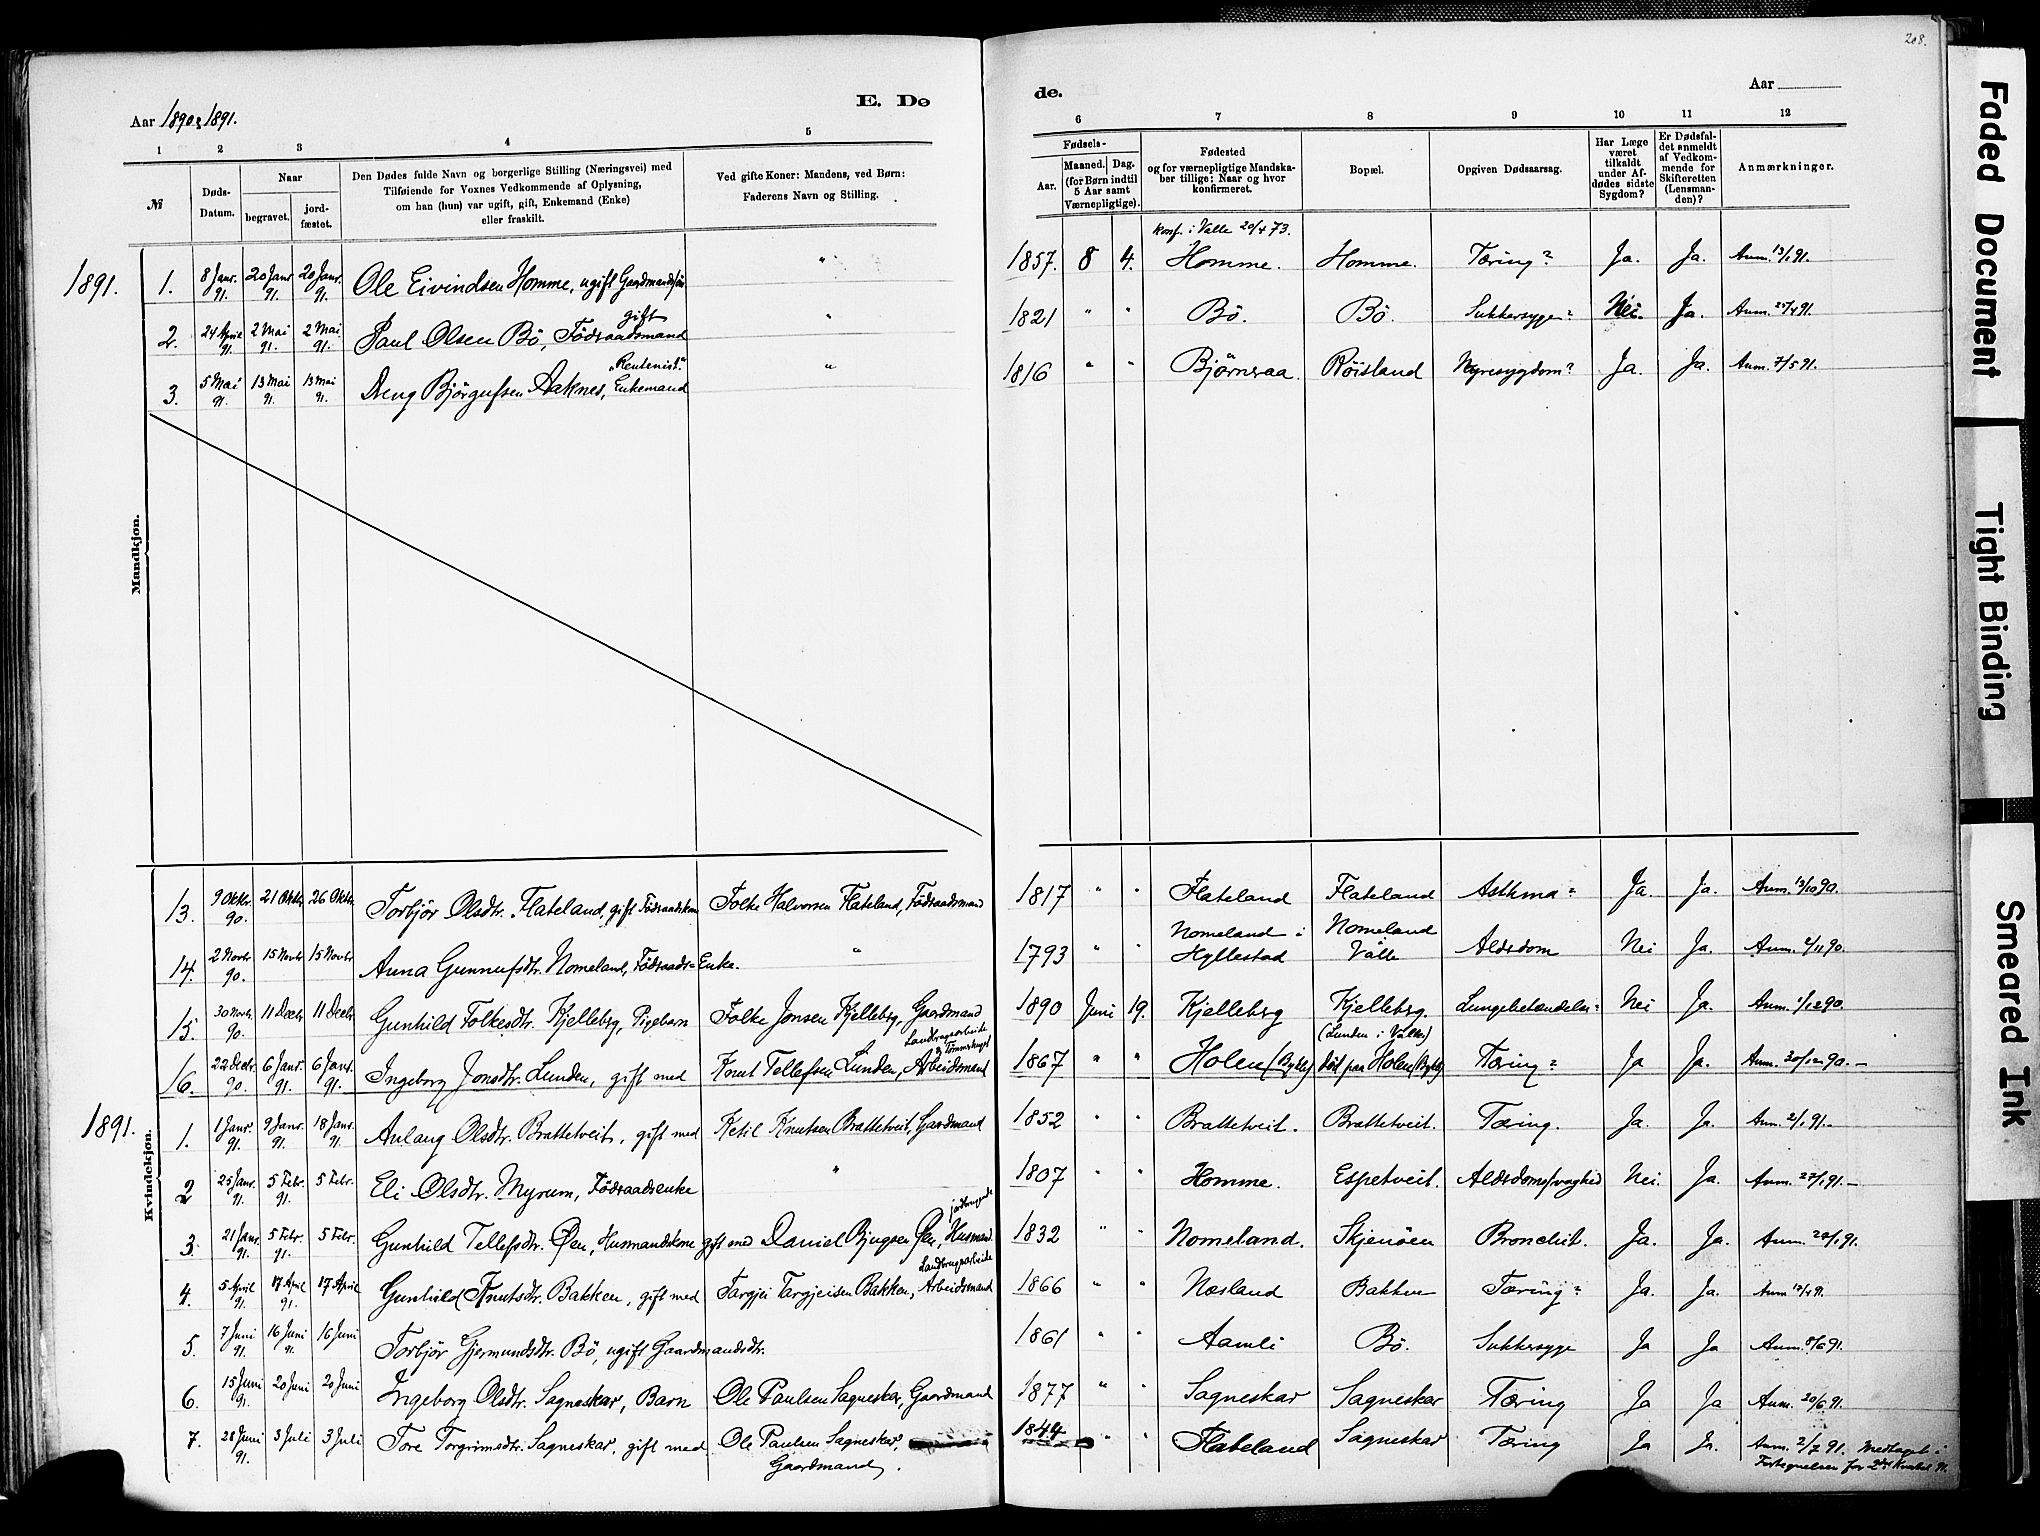 208.
E. Dø
de.
Aar 1890 & 1891.
Aar
1 2 3 4 5
6 7 8 9 10 11 12
№
Døds-
Datum.
Naar
begravet.
jord-
fæstet.
Den Dødes fulde Navn og borgerlige Stilling (Næringsvei) med
Tilføiende for Voxnes Vedkommende af Oplysning,
om han (hun) var ugift, gift, Enkemand (Enke)
eller fraskilt.
Ved gifte Koner: Mandens, ved Børn:
Faderens Navn og Stilling.
Fødsels-
Aar.
Maaned. Dag.
(for Børn indtil
5 Aar samt
Værnepligtige).
Fødested
og for værnepligtige Mandska-
ber tillige: Naar og hvor
konfirmeret.
Bopæl.
Opgiven Dødsaarsag.
Har Læge
været
tilkaldt
under Af-
dødes sidste
Sygdom?
Er Dødsfal-
det anmeldt
af Vedkom-
mende for
Skifteretten
(Lensman-
den)?
Anmærkninger.
Mandkjøn.
konf. i Valle 20/4 73.
1891. 1. 8 Janr. 91. 20 Janr. 91. 20 Janr. 91. Ole Eivindsen Homme, ugift Gaardmandssøn " 1857. 8 4. Homme. Homme. Tæring? Ja. Ja. Anm. 13/1 91.
gift
2. 24 April 91. 2 Mai 91. 2 Mai 91. Paul Olsen Bö, Födraadsmand " 1821 " " Bö. Bö. Sukkersyge? Nei. Ja. Anm. 25/4 91.
"Rentenist."
3. 5 Mai 91. 13 Mai 91. 13 Mai 91. Dreng Björgufsen Aaknes, Enkemand " 1816 " " Bjørnraa. Röisland Nyresygdom? Ja. Ja. Anm. 7/5 91.
Kvindekjøn.
13. 9 Oktbr. 90. 21 Oktbr. 26 Oktbr. Torbjör Olsdtr. Flateland, gift Födraadskone Folke Halvorsen Flateland, Födraadsmand 1817 " " Flateland Flateland Asthma? Ja. Ja. Anm. 13/10 90.
14. 2 Novbr. 90. 15 Novbr 15 Novbr Anna Gunnufsdtr. Nomeland, Födraads-Enke. " 1793 " " Nomeland i Hyllestad Nomeland Valle Aldsdom Nei Ja. Anm. 2/11 90.
15. 30 Novbr. 90. 11 Decbr 11 Decbr Gunhild Folkesdtr. Kjelleberg, Pigebarn Folke Jonsen Kjelleberg, Gaardmand 1890 Juni 19. Kjelleberg Kjelleberg. Lungebetændelse? Nei Ja. Anm. 1/12 90.
Landbrugsarbeide
& Tömmerhugst
(Lunden i Valle)
16. 22 Decbr 90. 6 Janr. 91. 6 Janr. 91. Ingeborg Jonsdtr. Lunden, gift med Knut Tellefsen Lunden, Arbeidsmand 1867 " " Holen (Bygl) död paa Holen (Bygl) Tæring? Ja Ja. Anm. 30/12 90. –
1891. 1. 1 Janr. 91. 9 Janr. 91. 18 Janr. 91. Aulaug Olsdtr. Brattetveit, gift med Ketil Knutsen Brattetveit, Gaardmand 1852 " " Brattetveit. Brattetveit. Tæring. Ja. Ja. Anm. 2/1 91. –
2 25 Janr. 91. 5 Febr. 91. 5 Febr. Eli Olsdtr. Myrum, Födraadsenke " 1807 " " Homme. Espetveit. Aldsdomssvaghed Nei. Ja. Anm. 27/1 91. –
jordbrugende
3. 21 Janr. 91. 5 Febr. 91. 5 Febr. Gunhild Tellefsdtr. Øen, Husmandskone gift med Daniel Bjugsen Øen, Husmand 1832 " " Nomeland. Skjenöen Bronchit. Ja. Ja. Anm. 28/1 91.
Landbrugsarbeide
4. 5 April 91. 17 April 91. 17 April Gunhild Knutsdtr. Bakken, gift med Targjei Targjeisen Bakken, Arbeidsmand 1866 " " Næsland Bakken Tæring? Ja. Ja. Anm. 12/4 91.
5. 7 Juni 91. 16 Juni 91. 16 Juni Torbjör Gjermundsdtr. Bö, ugift Gaardmandsdtr. 1861 " " Aamli Bö. Sukkersyge Ja Ja Anm. 8/6 91.
6. 15 Juni 91. 20 Juni 20 Juni Ingeborg Olsdtr. Sagneskar, Barn Ole Paulsen Sagneskar, Gaardmand 1877 " " Sagneskar Sagneskar Tæring Ja Ja Anm. 20/6 91.
7. 28 Juni 91. 3 Juli 3 Juli Tore Torgrimsdtr. Sagneskar, gift med Ole Paulsen Sagneskar, Gaardmand. 1844 " " Flateland Sagneskar Tæring Ja Ja. Anm. 2/7 91. Medtaget i
Fortegnelsen for 2det Kvartal 91.
Faded Document
Tight Binding
Smeared Ink